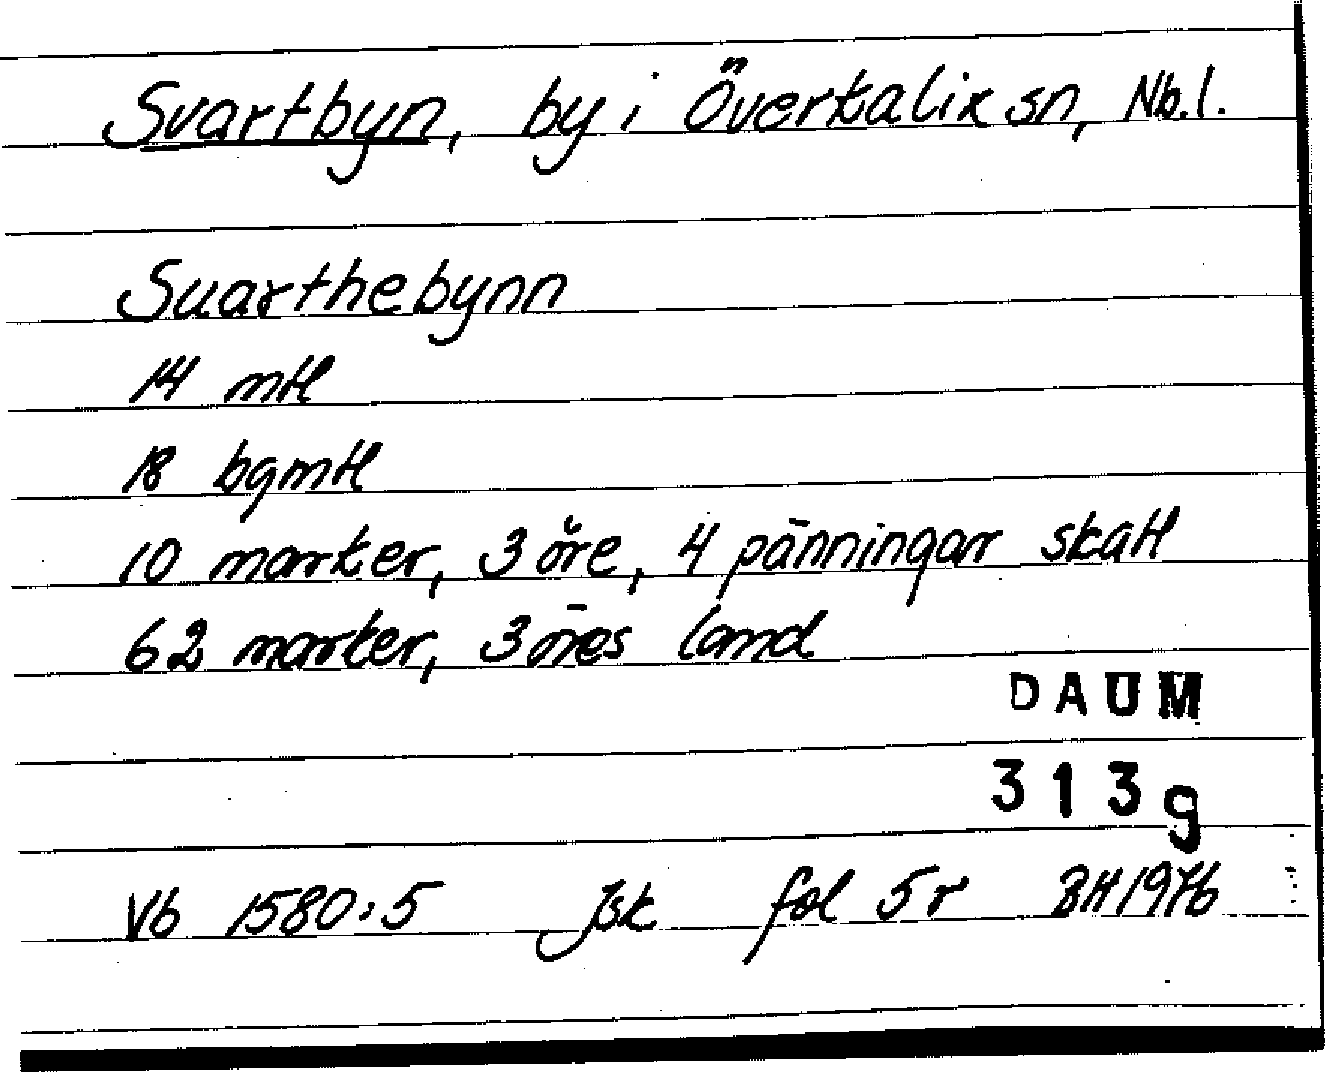 Svartbyn, by i Överkalix sn, Nb.l.
Suarthebynn
14 mtl
18 bgmtl
10 marker, 3 öre, 4 pänningar skatt
62 marker, 3 öres land
DAUM
3139
Vb 1580:5 Jsk fol 5r BH 1976